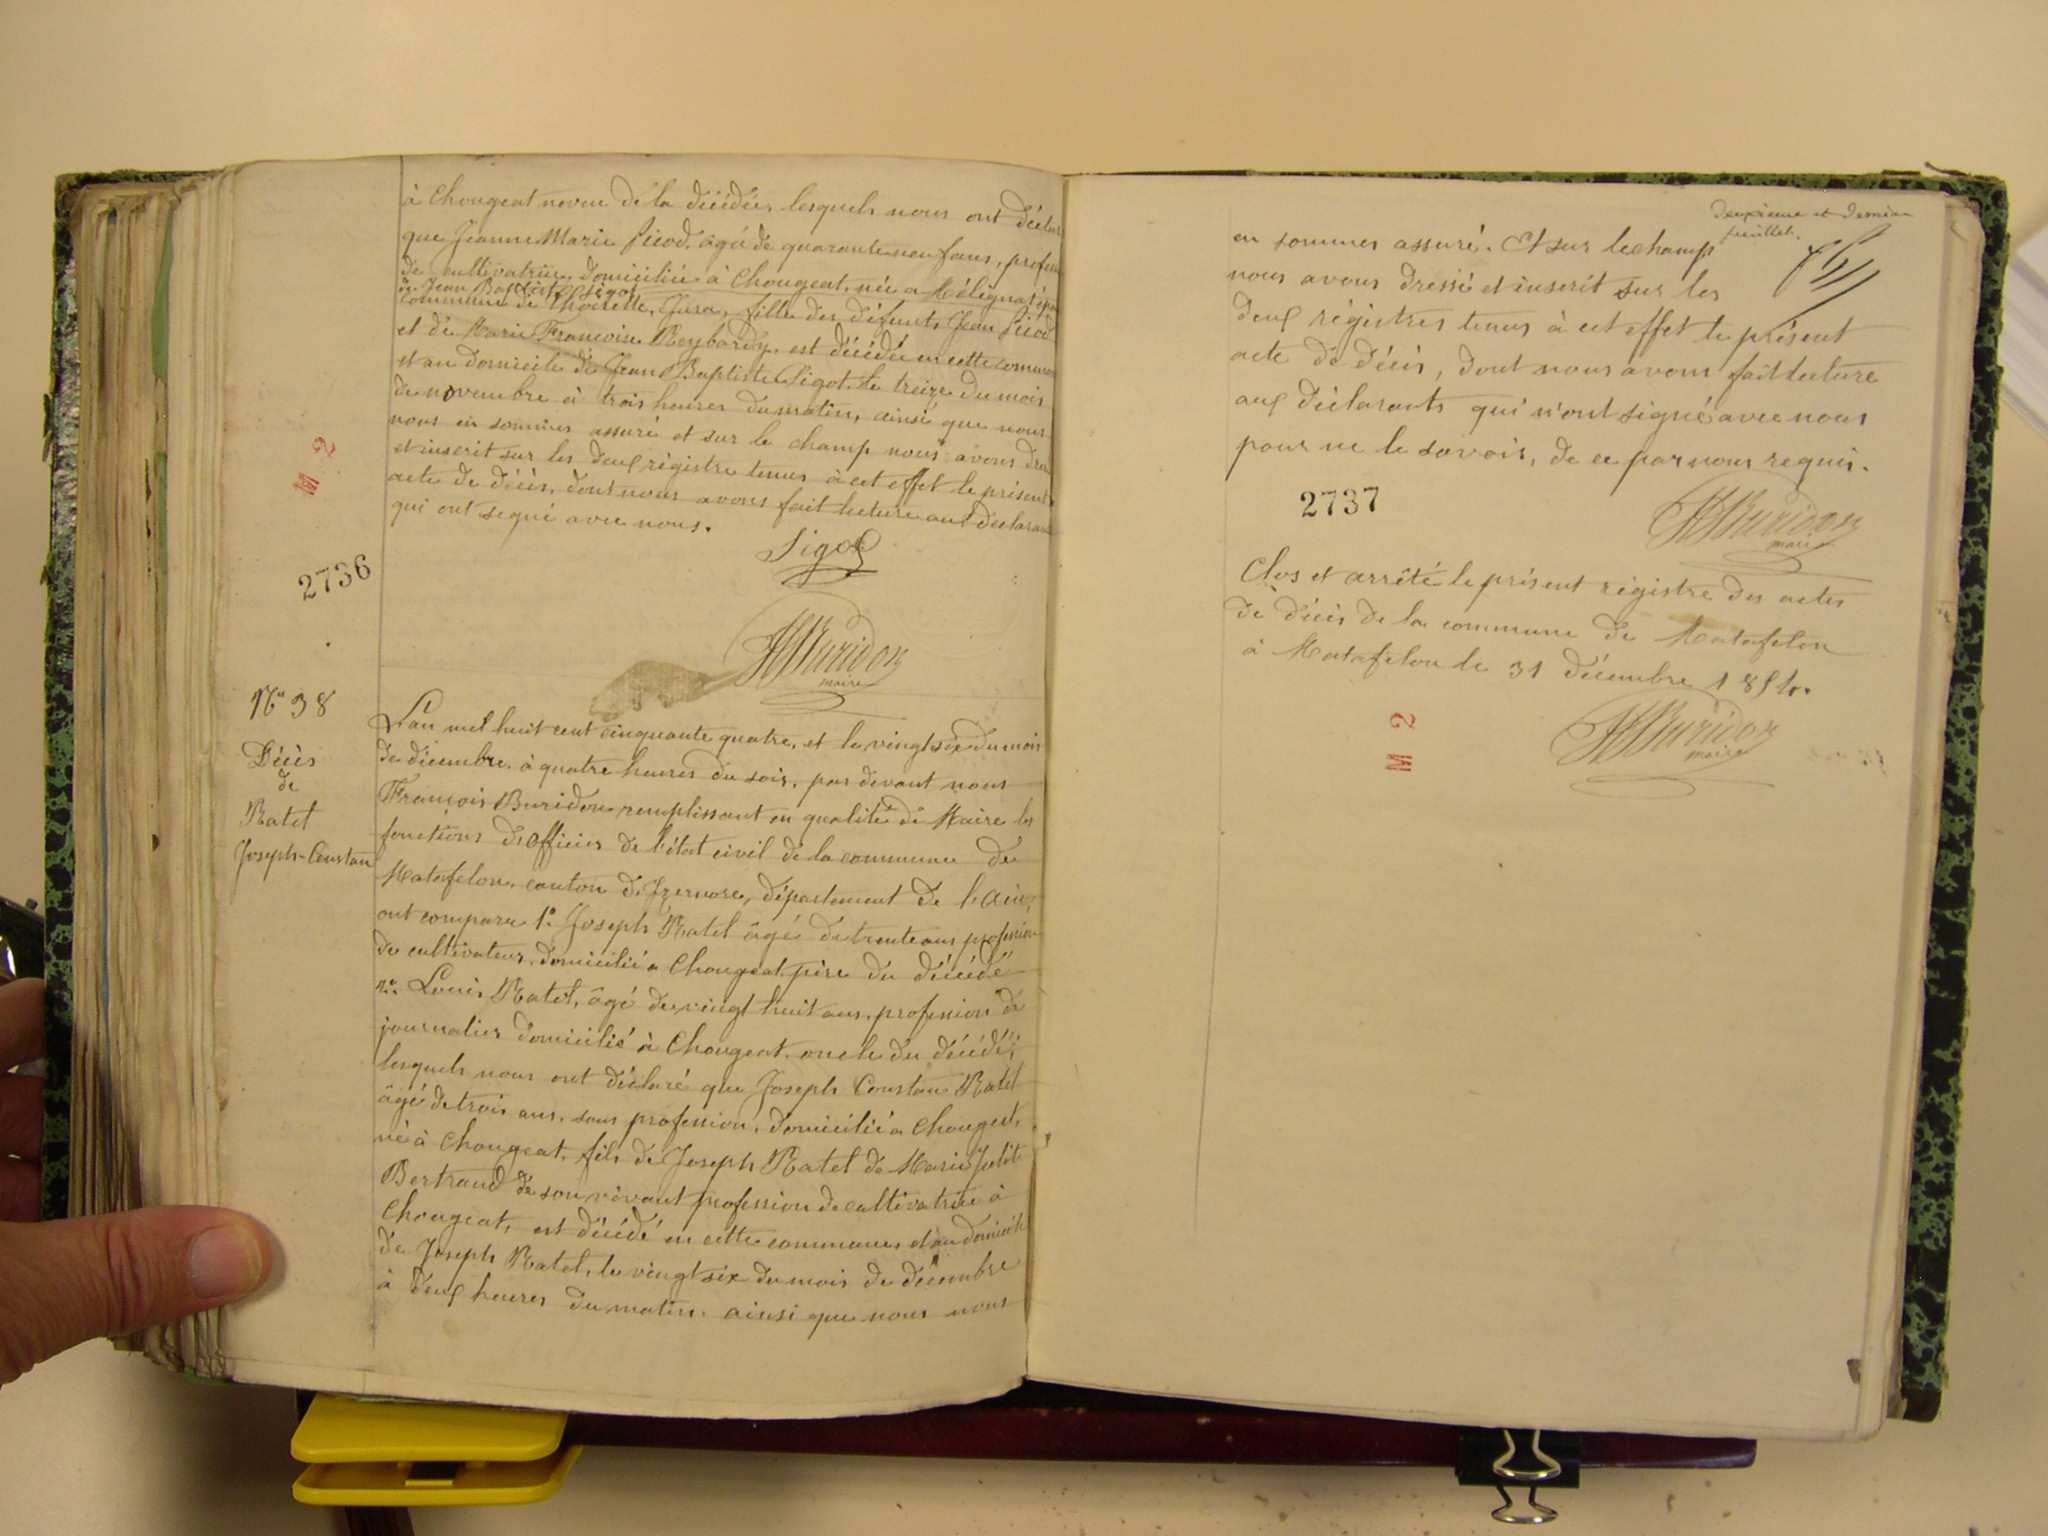 à Chougeat neveu de la décédée, lesquels nous ont déclar
que Jeanne Marie Picod, âgée de quarante neuf ans, profess
de cultivatrice, domiciliée à Chougeat, née a Mélignat
de Jean Baptiste Sigot
commune de Thoirette, Jura, fille des défunts Jean Picod
et de Marie Françoise Reybardy, est décédée en cette commune
et au domicile de Jean Baptiste Sigot, le treize du mois
de novembre à trois heures du matin, ainsi que nous
nous en sommes assuré et sur le champ nous avons dres
et inscrit sur les deux régistre tenus à cet effet le présent
acte de décès, dont nous avons fait lecture aux déclarant
qui ont segné avec nous.
Sigot
Buridon
maire
M 2
2736
No 38
Décès
de
Ratel
Joseph-Constan
L'an mil huit cent cinquante quatre, et le vingt six du mois
de décembre, à quatre heures du soir, par devant nous
François Buridon remplissant en qualité de Maire les
fonctions d'officier de l'état civil de la commune de
Matafelon, canton d'Izernore, département de l'ain,
ont comparu 1º. Joseph Ratel âgée de trente ans profession
de cultivateur, domicilié a Chougeat, père du décédé
2º. Louis Ratel, âgé de vingt huit ans, profession de
journalier domicilié à Chougeat, oncle du décédé;
lesquels nous ont déclaré que Joseph Constan Ratel
âgé de trois ans, sans profession, domicilié a Chougeat,
né à Chougeat, fils de Joseph Ratel de Marie Julit
Bertrand de son vivant profession de cultivatrice à
Chougeat, est décédé en cette commune, et au domicile
de Joseph Ratel, le vingt six du mois de décembre
à deux heures du matin, ainsi que nous nous
Deuxième et Dernier
feuillet.
en sommes assuré. Et sur le champ
nous avons dressé et inscrit sur les
deux régistres tenus à cet effet le présent
acte de décès, dont nous avons fait lecture
aux déclarants qui n'ont signé avec nous
pour ne le savoir, de ce par nous requis.
2737
Buridon
maire
Clos et arrêté le présent régistre des actes
de décès de la commune de Matafelon
à Matafelon le 31 décembre 1854.
M 2
Buridon
maire